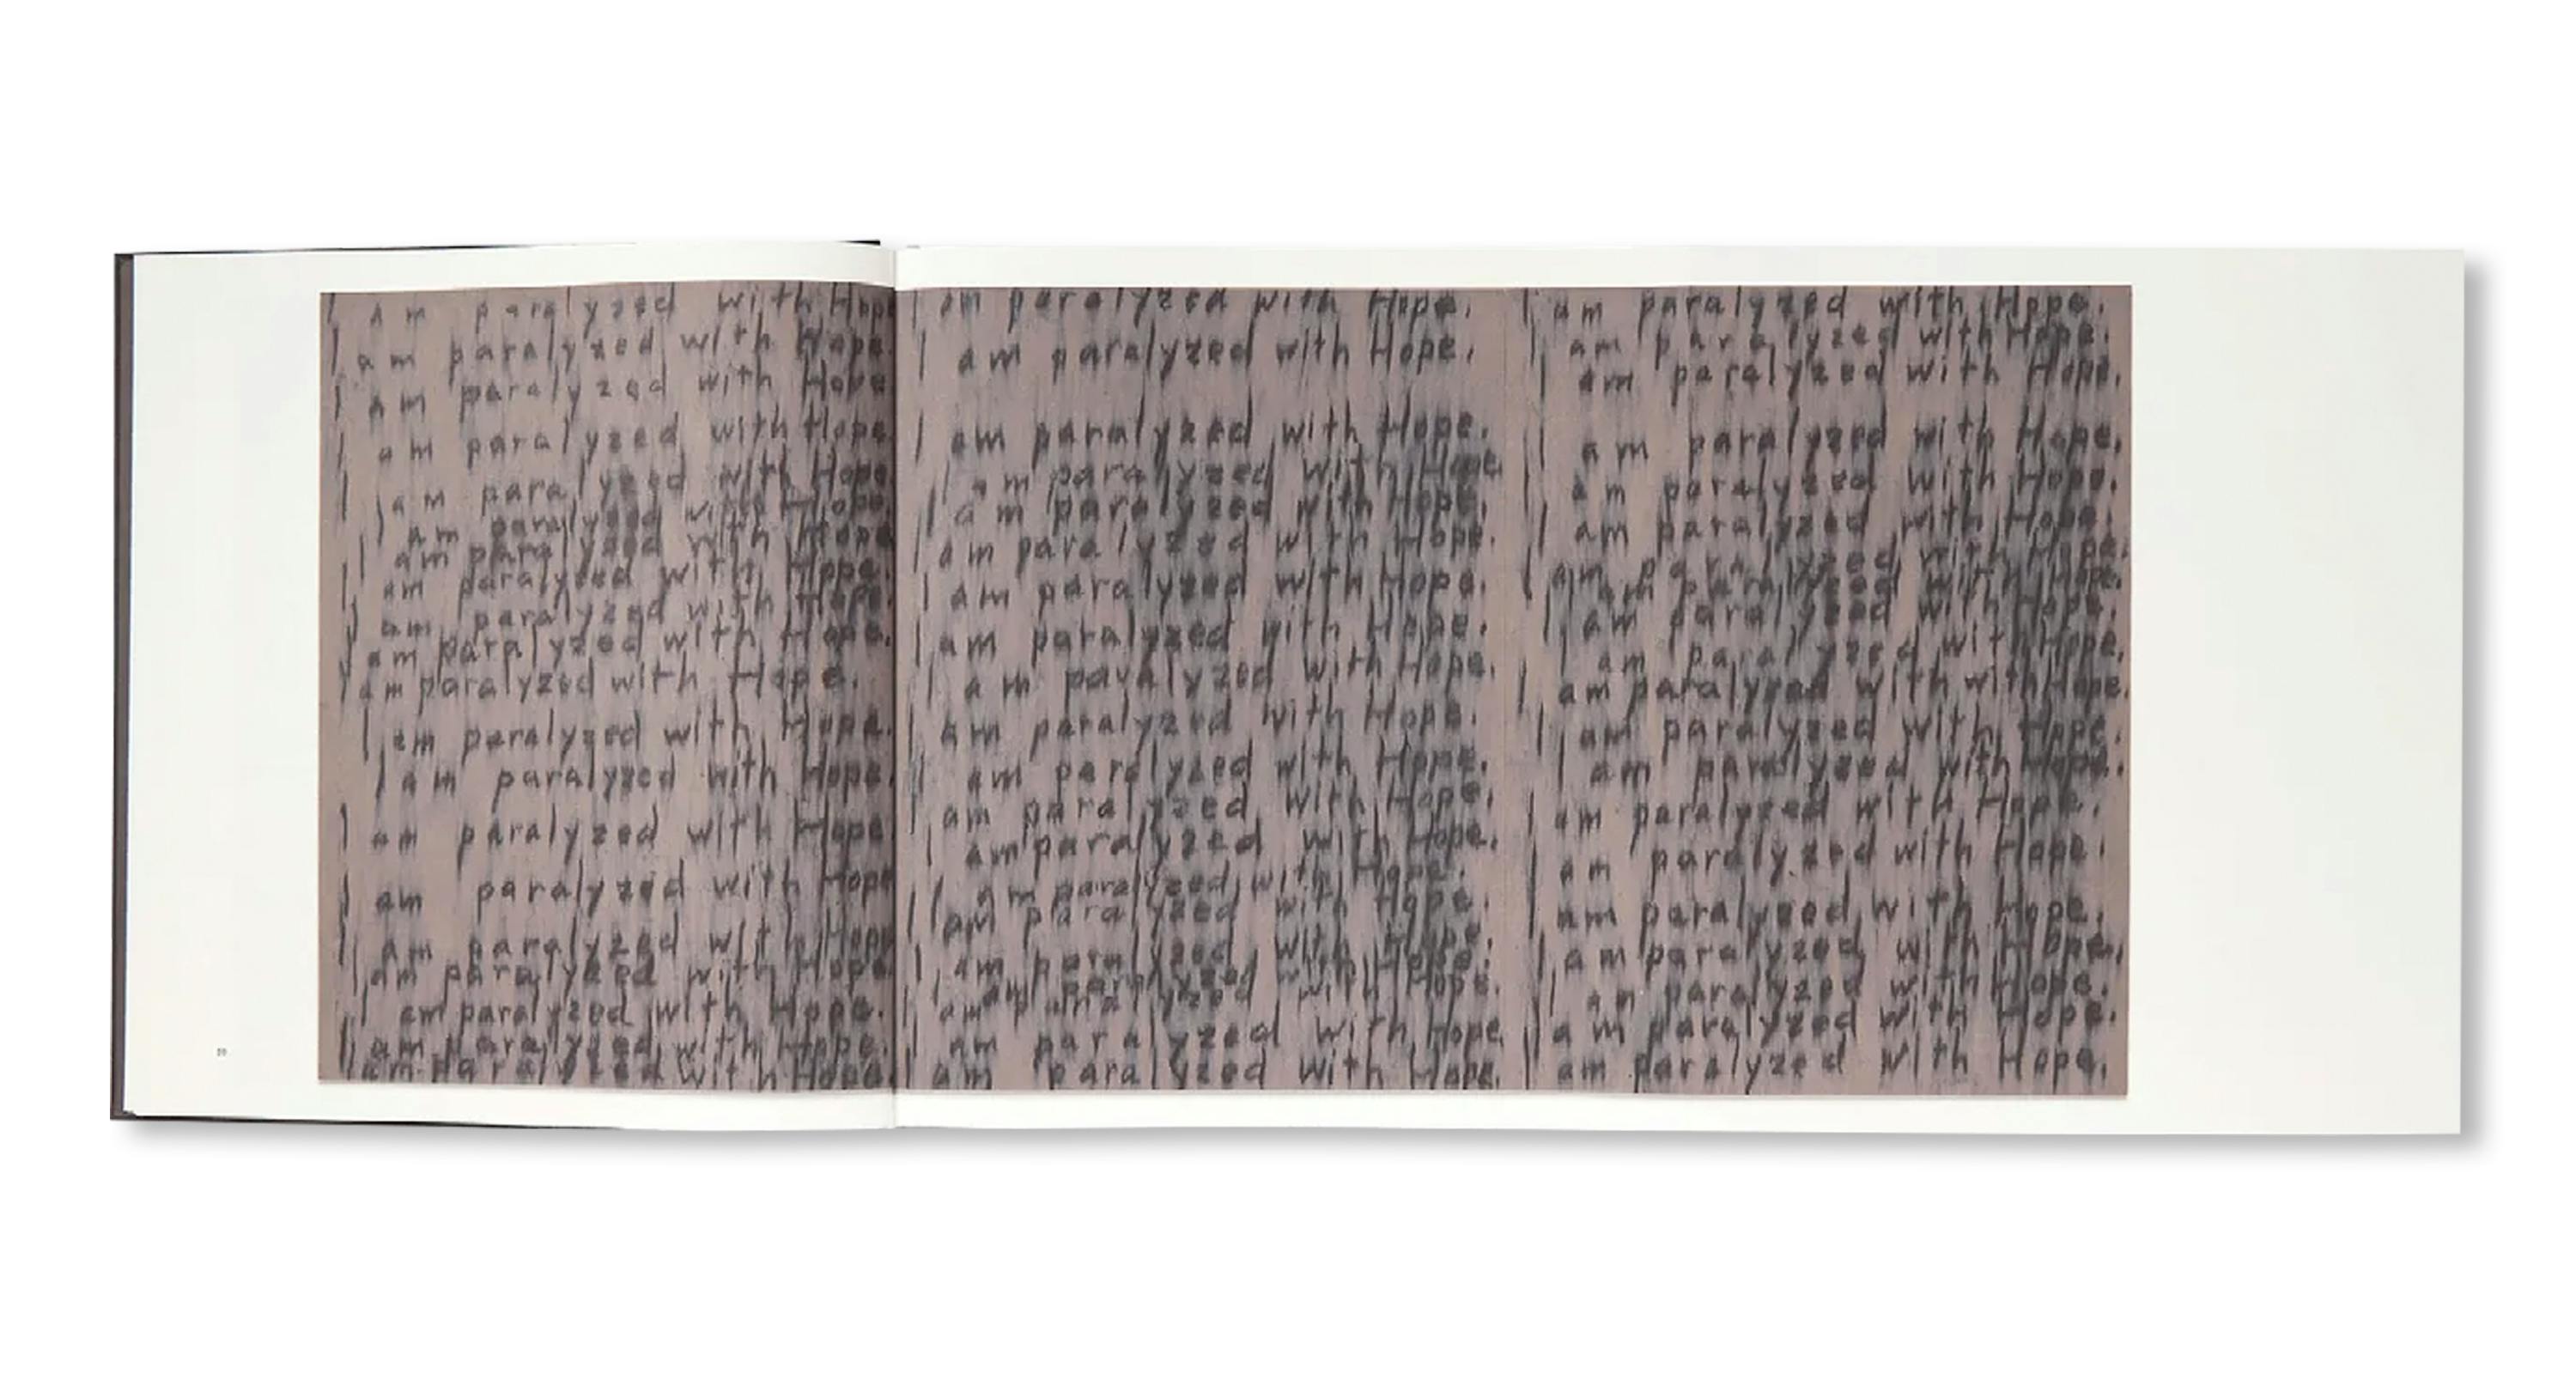 I am paralyzed with Hope
I am paralyzed with Hope.
I am paralyzed with Hope
I am paralyzed with Hope.
I am paralyzed with Hope
I am paralyzed with Hope
I am paralyzed with Hope
I am paralyzed with Hope.
I am paralyzed with Hope.
I am paralyzed with Hope.
I am paralyzed with Hope.
I am paralyzed with Hope.
I am paralyzed with Hope.
I am paralyzed with Hope
I am paralyzed with Hope
I am paralyzed with Hope
I am paralyzed with Hope.
I am paralyzed with Hope.
I am paralyzed with Hope.
I am paralyzed with Hope.
I am paralyzed with Hope.
I am paralyzed with Hope.
I am paralyzed with Hope.
I am paralyzed with Hope.
I am paralyzed with Hope.
I am paralyzed with Hope.
I am paralyzed with Hope.
I am paralyzed with Hope.
I am paralyzed with Hope.
I am paralyzed with Hope.
I am paralyzed with Hope.
I am paralyzed with Hope.
I am paralyzed with Hope.
I am paralyzed with Hope.
I am paralyzed with Hope.
I am paralyzed with Hope.
I am paralyzed with Hope.
I am paralyzed with Hope.
I am paralyzed with Hope.
I am paralyzed with Hope.
I am paralyzed with Hope.
I am paralyzed with Hope.
I am paralyzed with Hope.
I am paralyzed with Hope.
I am paralyzed with Hope.
I am paralyzed with Hope.
I am paralyzed with Hope.
I am paralyzed with Hope.
I am paralyzed with Hope.
I am paralyzed with Hope.
I am paralyzed with with Hope.
I am paralyzed with Hope.
I am paralyzed with Hope.
I am paralyzed with Hope.
I am paralyzed with Hope.
I am paralyzed with Hope.
I am paralyzed with Hope.
I am paralyzed with Hope.
I am paralyzed with Hope.
I am paralyzed with Hope.